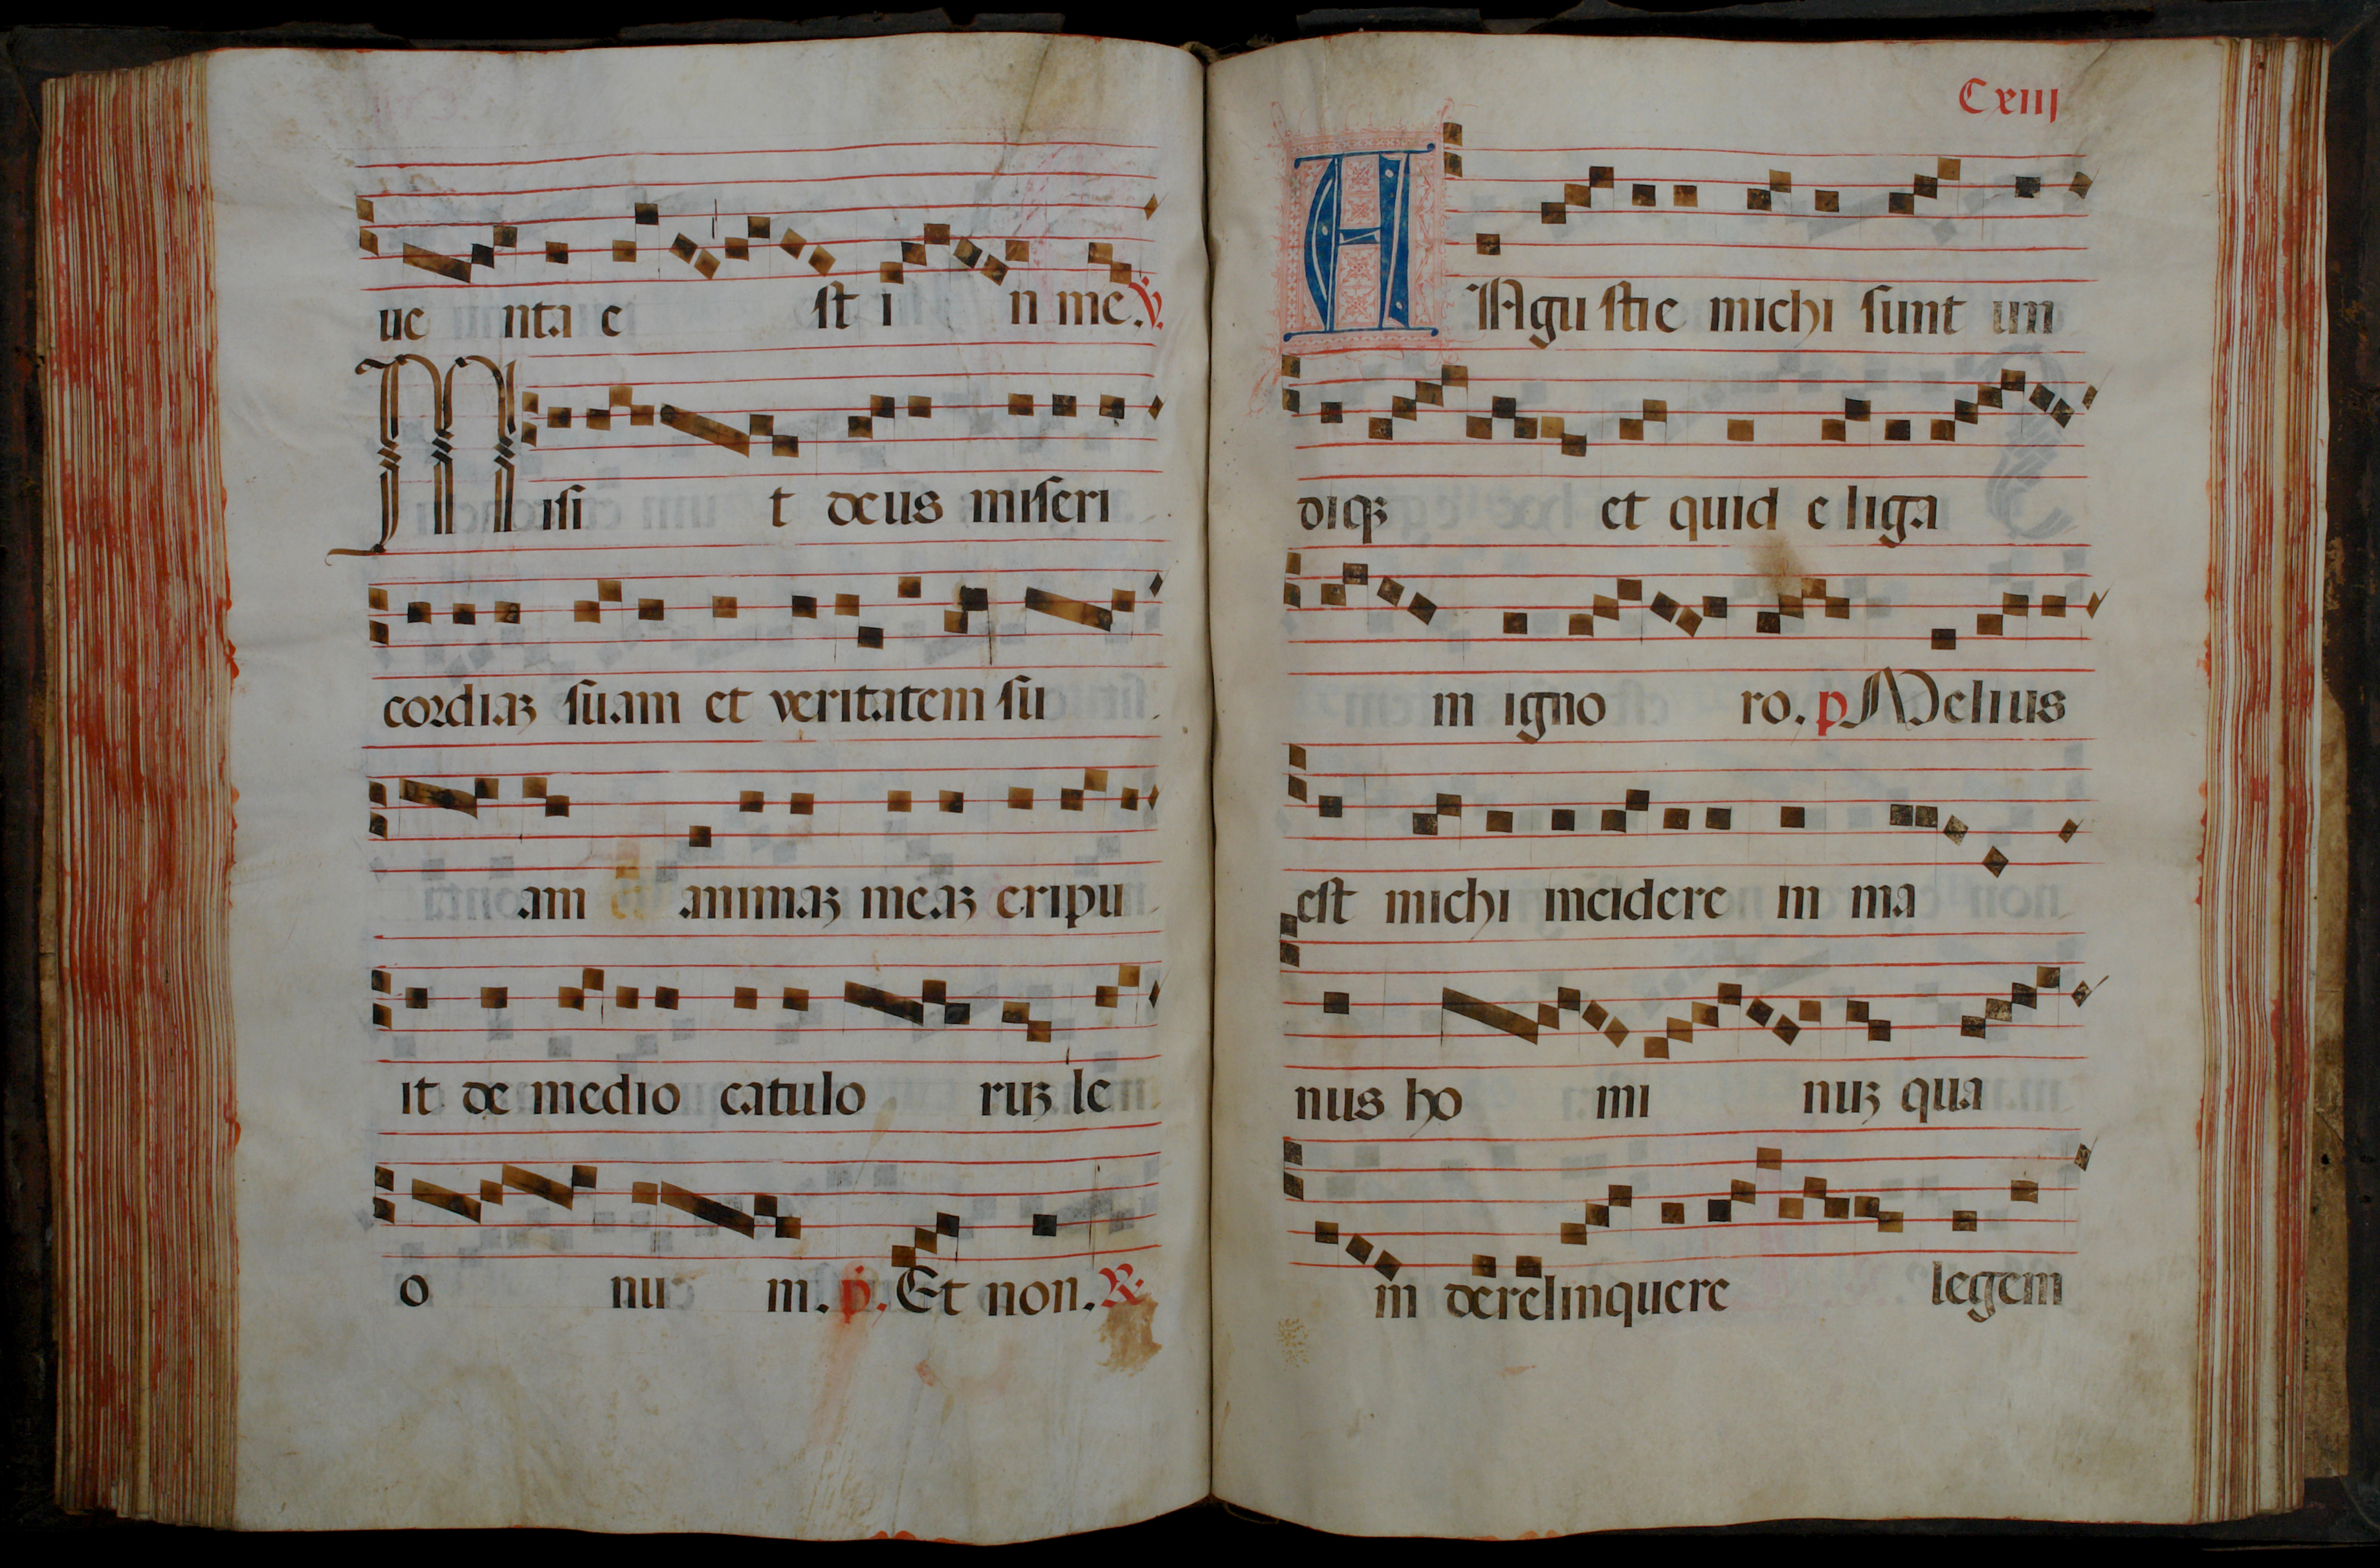 ue nta e st i n me. V.
Misi t deus miseri
cordiaꝫ suam et veritatem su
am animaꝫ meaꝫ eripu
it de medio catulo ruꝫ le
o nu m. p. Et non. R.
Cxiii
ANgustie michi sunt un
diqꝫ et quid eliga
m igno ro. p Melius
est michi incidere in ma
nus ho mi nuꝫ qua
m derelinquere legem